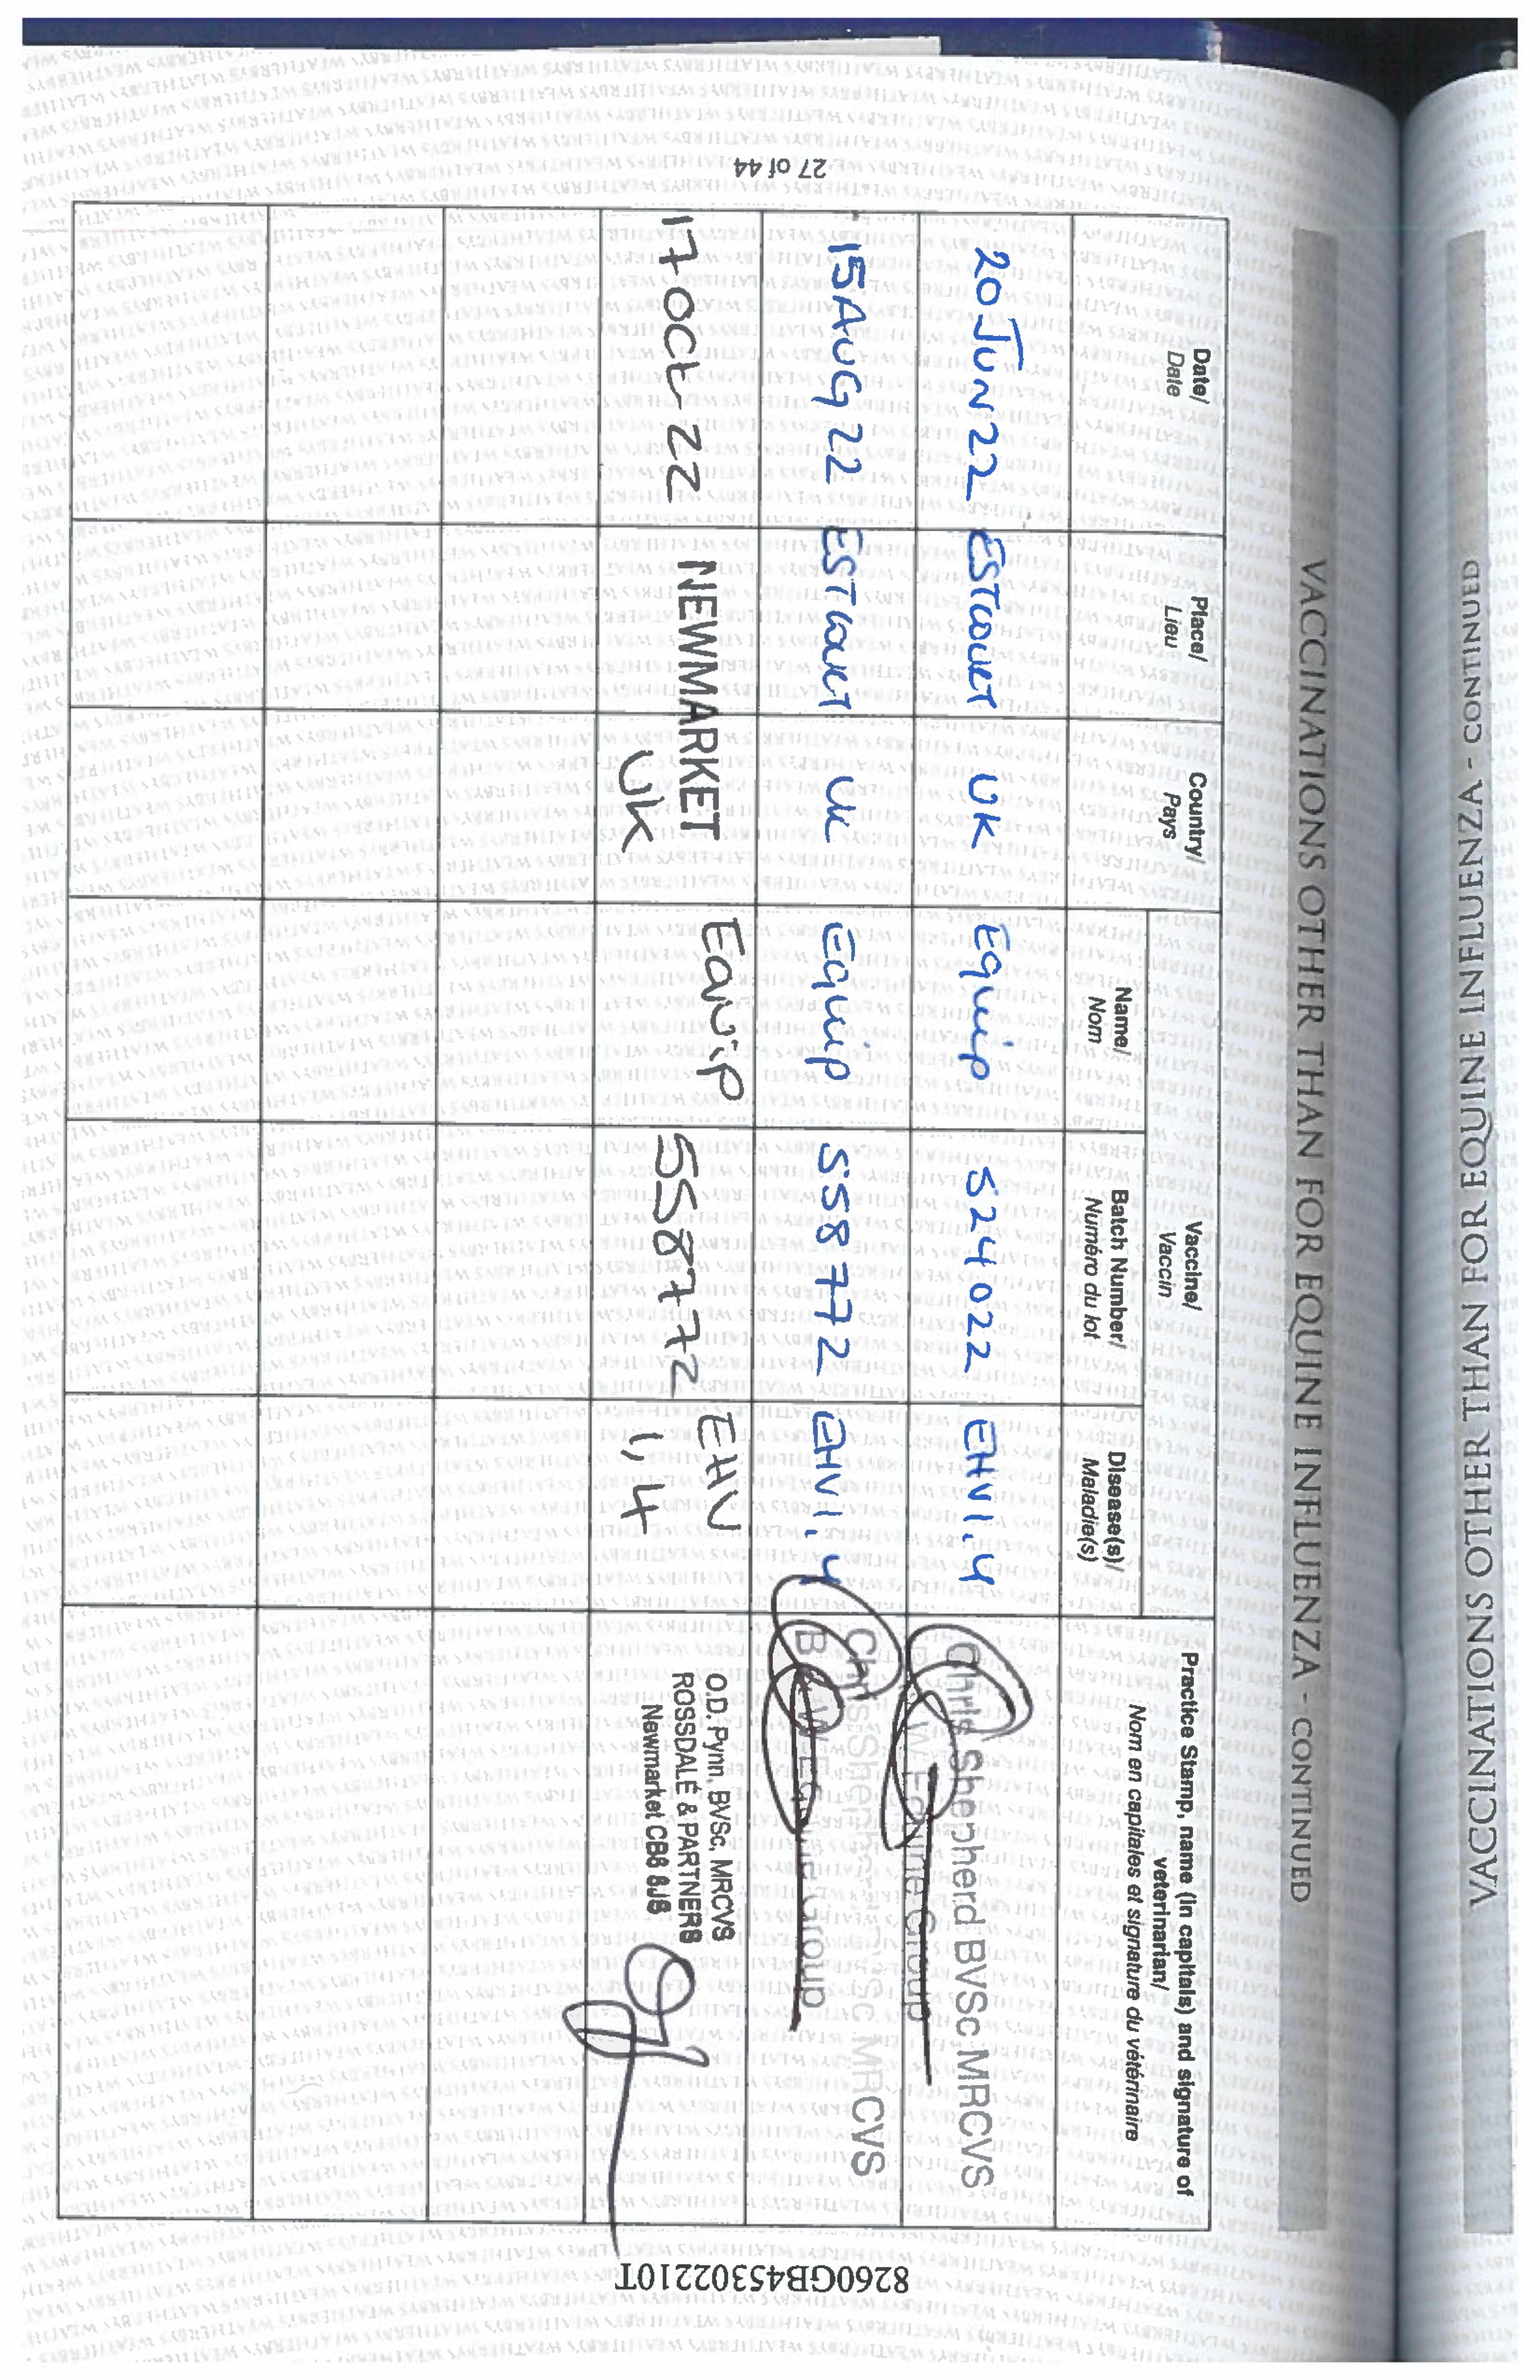 VACCINATIONS OTHER THAN FOR EQUINE INFLUENZA - CONTINUED
VACCINATIONS OTHER THAN FOR EQUINE INFLUENZA - CONTINUED
Date/
Date
Place/
Lieu
Country/
Pays
Vaccine/
Vaccin
Name/
Nom
Batch Number/
Numéro du lot
Disease(s)/
Maladie(s)
Practice Stamp, name (in capitals) and signature of
veterinarian/
Nom en capitales et signature du vétérinaire
20 JUN 22 ESTCOURT UK Equip 524022 EHV1,4
Chris Shepherd BVSc MRCVS
W Equine Group
15 AUG 22 ESTCOURT UK Equip 558772 EHV1,4
Chris Shepherd BVSc MRCVS
B W Equine Group
17 OCT 22 NEWMARKET UK Equip 558772 EHV
1,4
O.D. Pynn, BVSc, MRCVS
ROSSDALE & PARTNERS
Newmarket CB8 8JS
27 of 44
8260GB45302210T